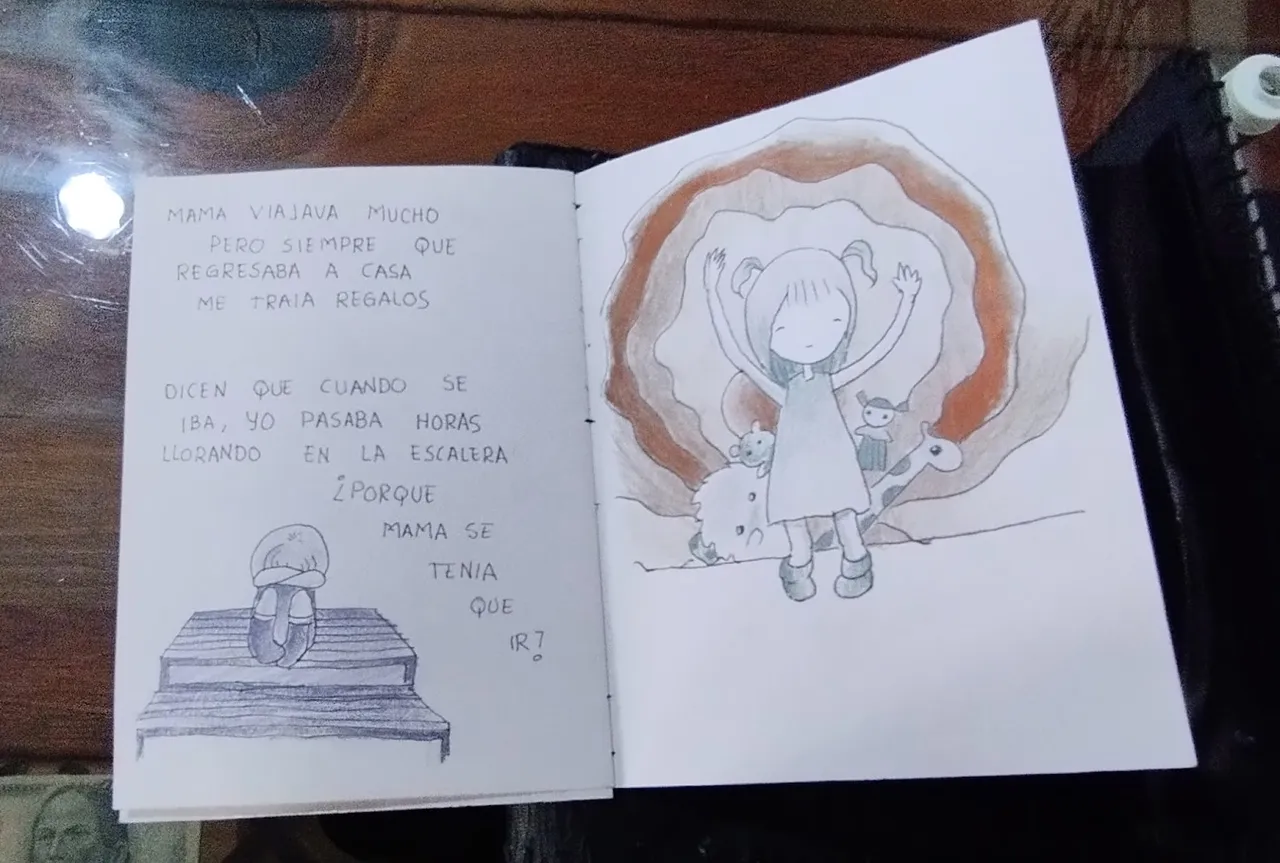 MAMA VIAJAVA MUCHO
PERO SIEMPRE QUE
REGRESABA A CASA
ME TRAIA REGALOS
DICEN QUE CUANDO SE
IBA, YO PASABA HORAS
LLORANDO EN LA ESCALERA
¿PORQUE
MAMA SE
TENIA
QUE
IR?